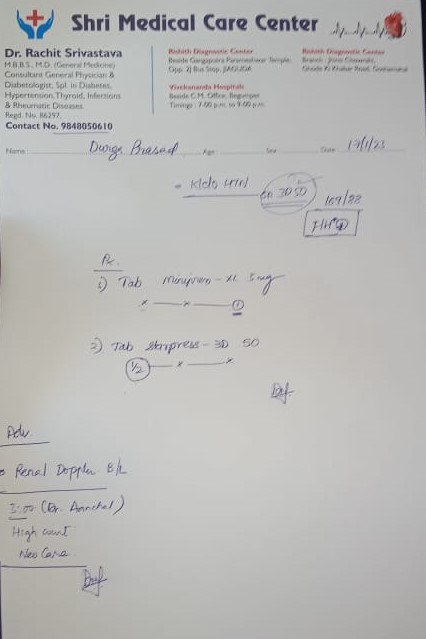 Shri Medical Care Center
Dr. Rachit Srivastava
M.B.B.S., M.D. (General Medicine)
Consultant General Physician &
Diabetologist, Spl. in Diabetes,
Hypertension, Thyroid, Infections
& Rheumatic Diseases
Regd. No. 86297,
Contact No. 9848050610
Rishith Diagnostic Center
Beside Gangaputra Parameshwar Temple,
Opp. 2J Bus Stop,
Vivekananda Hospitals
Beside C.M. Office, Begumpet
Timings : 7:00 p.m. to 9:00 p.m.
Rishith Diagnostic Center
Name Durga Prasad Age Sex Date 17/1/23
K/c/o HTN on 3D 50
169/88
Rx.
1) Tab XL 5mg
x — x — 1
2) Tab Starpress - 3D 50
1/2 — x — x
Adv.
Renal Doppler B/L
3:00 (Dr. Aanchal)
High count
Neo Care